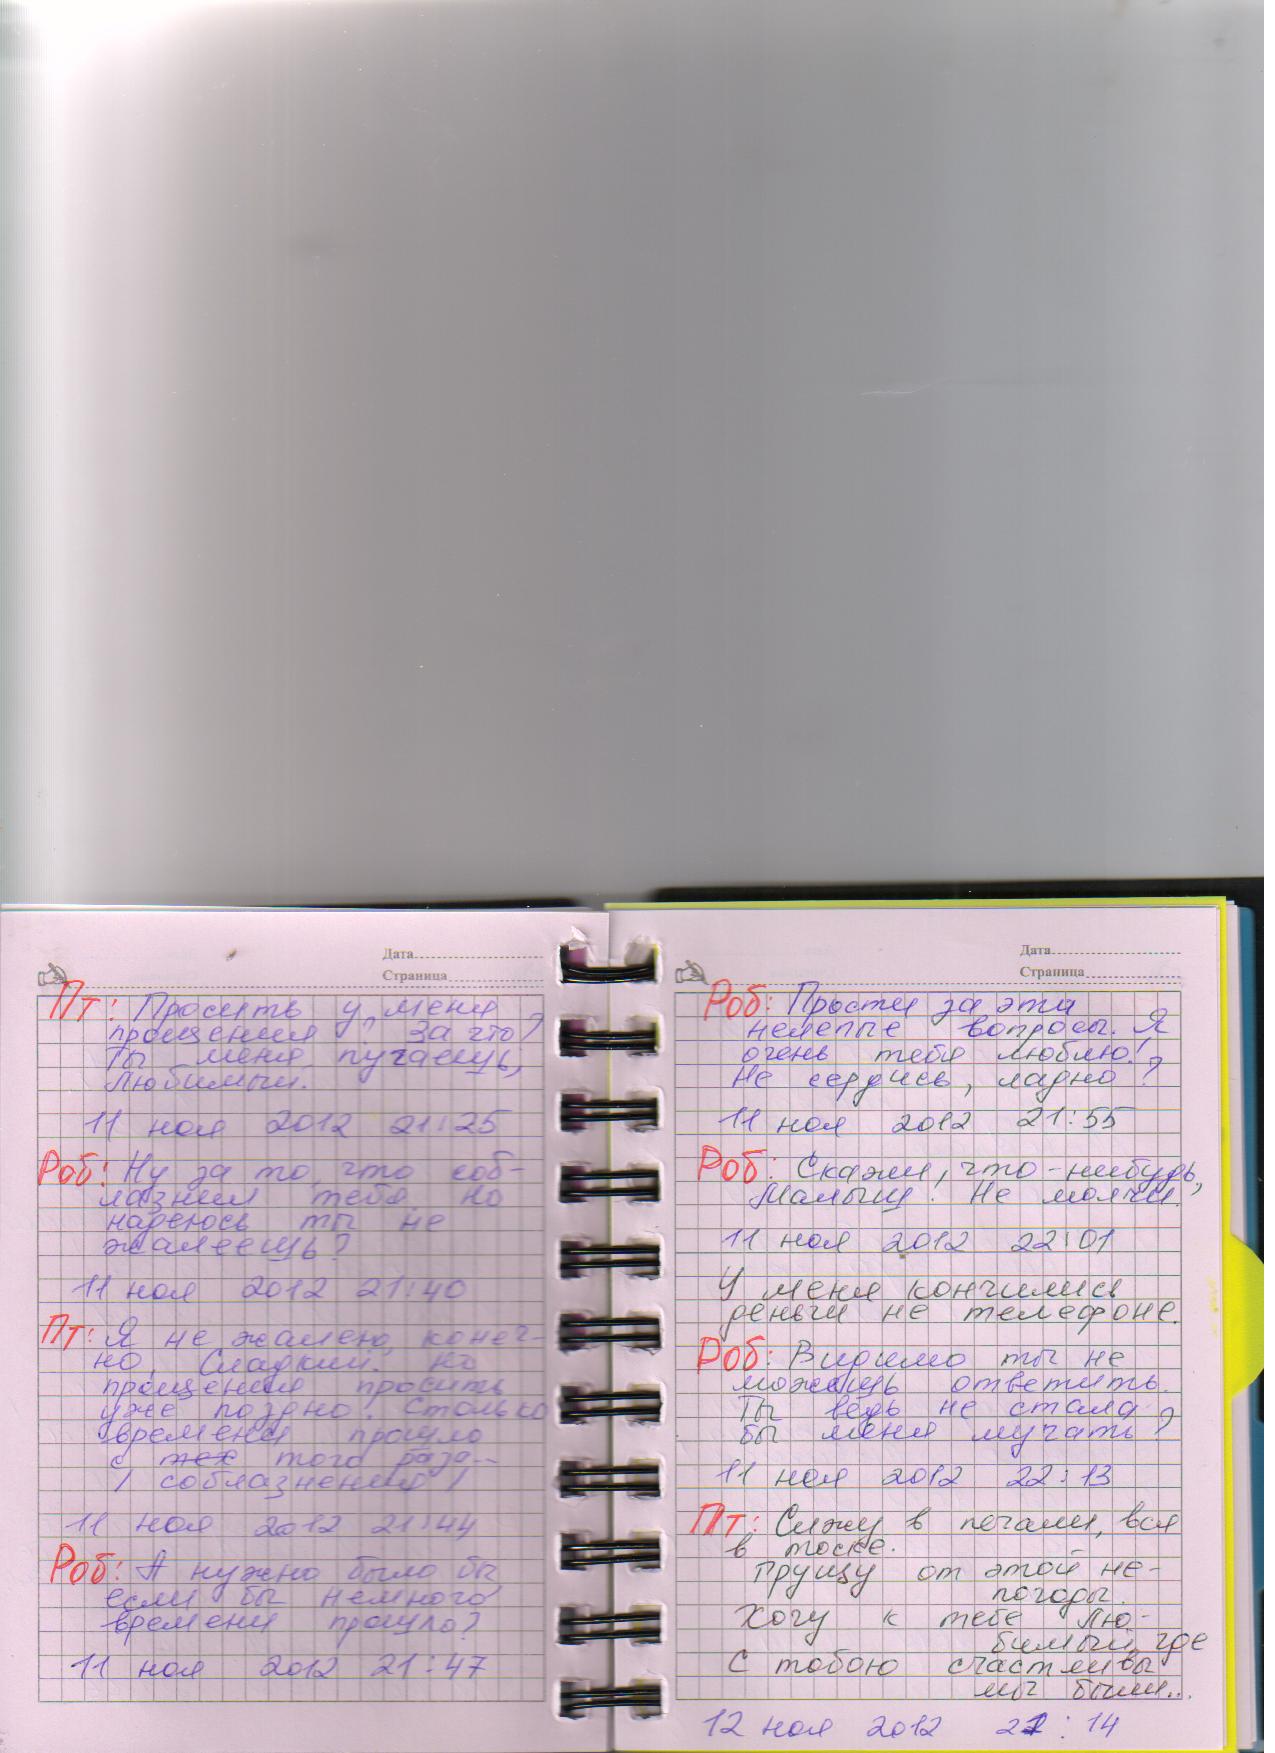 Дата
Страница
Пт: Просить у меня
прощения? За что?
Ты меня пугаешь,
Любимый.
11 ноя 2012 21:25
Роб: Ну за то что соб-
лазнил тебя но
надеюсь ты не
жалеешь?
11 ноя 2012 21:40
Пт: Я не жалею, конеч-
но, Сладкий. Но
прощения просить
уже поздно. Столько
времени прошло
с тех того раза...
/ соблазнения /
11 ноя 2012 21:44
Роб: А нужно было бы
если бы немного
времени прошло?
11 ноя 2012 21:47
Дата
Страница
Роб: Прости за эти
нелепые вопросы. Я
очень тебя люблю!
Не сердись, ладно?
11 ноя 2012 21:55
Роб: Скажи, что-нибудь,
Малыш! Не молчи.
11 ноя 2012 22:01
У меня кончились
деньги не телефоне.
Роб: Видимо ты не
можешь ответить.
Ты ведь не стала
бы меня мучать?
11 ноя 2012 22:13
Пт: Сижу в печали, вся
в тоске.
Грущу от этой не-
погоды.
Хочу к тебе Лю-
бимый, где
С тобою счастливы
мы были...
12 ноя 2012 21:14